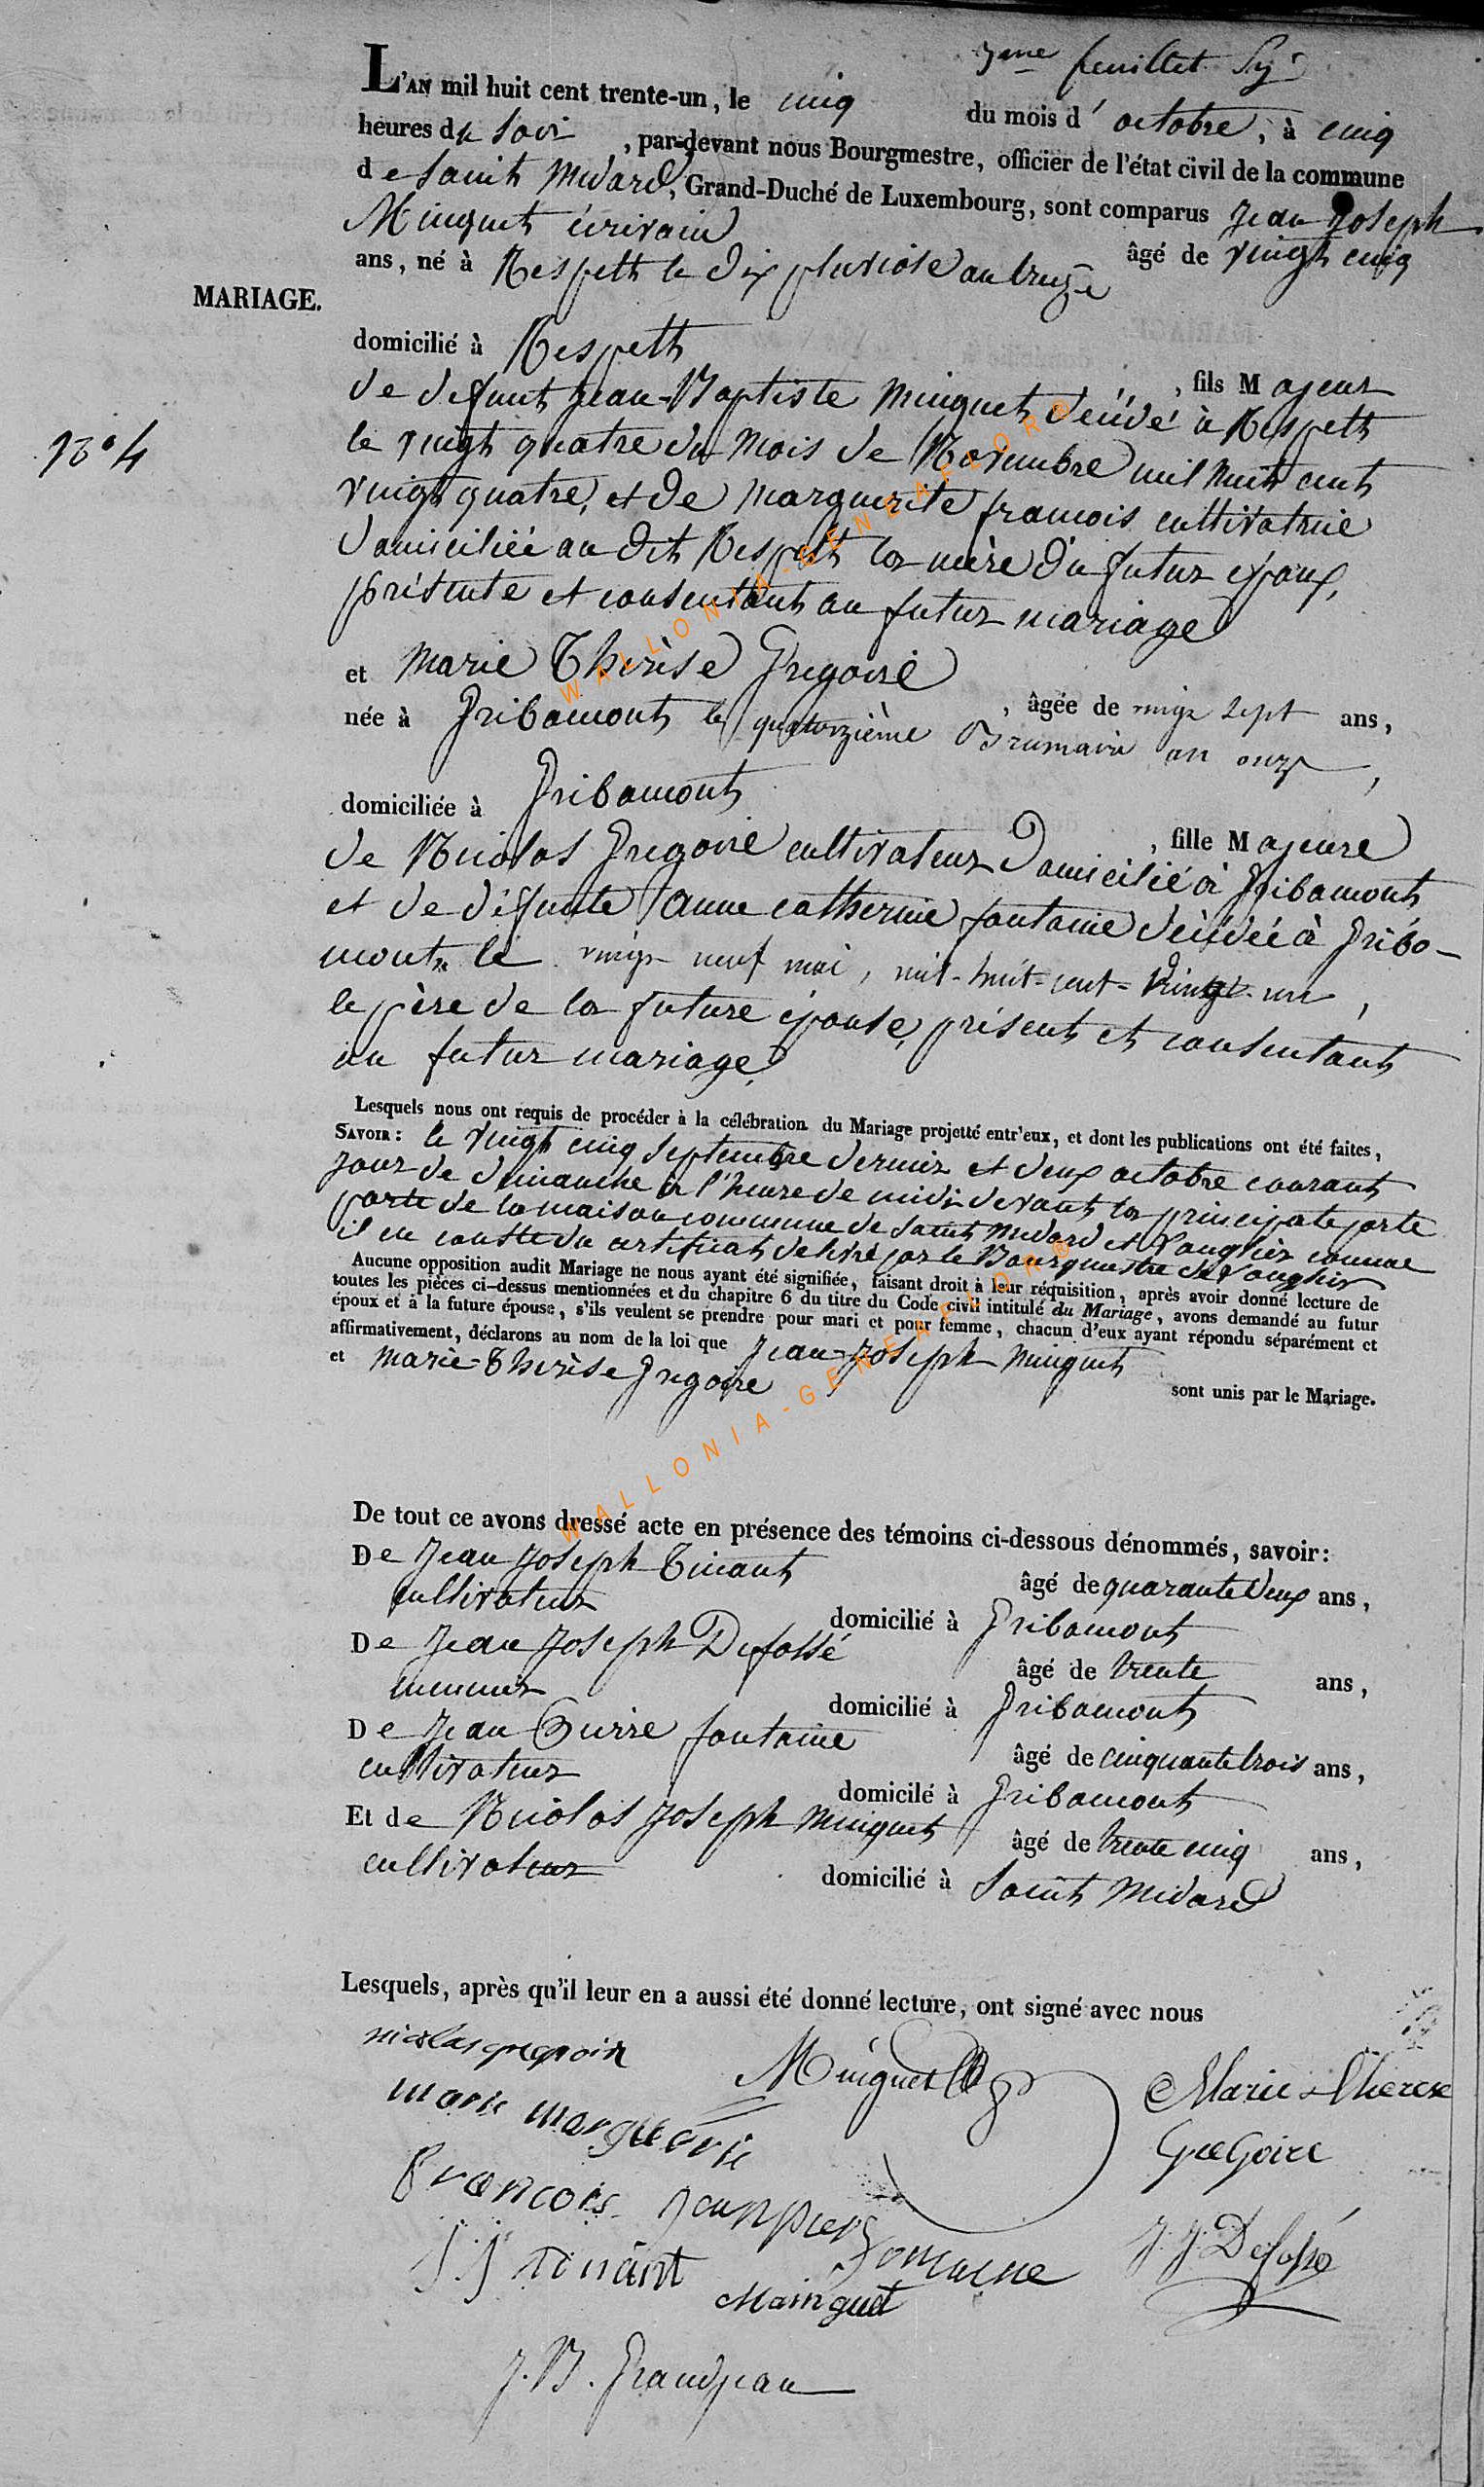 3me feuillet
L'AN mil huit cent trente-un, le cinq du mois d' octobre, à cinq
heures du soir, par-devant nous Bourgmestre, officier de l'état civil de la commune
de Saint Médard, Grand-Duché de Luxembourg, sont comparus Jean Joseph
Minguet écrivain âgé de vingt cinq
ans, né à Respelt le dix pluviose an treize
MARIAGE.
domicilié à Respelt, fils Majeur
de defunt Jean-Baptiste Minguet décédé à Respelt
No 4
le vingt quatre du mois de Novembre mil huit cent
vingt quatre, et de Marguerite francois cultivatrice
domiciliée au dit Respelt la mère du futur époux,
présente et consentant au futur mariage
et Marie Thérèse Gregoire, âgée de vingt sept ans,
née à Gribomont le quatorzième Brumaire an onze,
domiciliée à Gribomont, fille Majeure
de Nicolas Gregoire cultivateur Domicilié à Gribomont
et de défunte Anne catherine fontaine décédée à Gribo-
mont le vingt neuf mai, mil-huit-cent-vingt-un,
le père de la future épouse, présent et consentant
au futur mariage.
Lesquels nous ont requis de procéder à la célébration du Mariage projetté entr'eux, et dont les publications ont été faites,
SAVOIR: le vingt cinq septembre dernier et deux octobre courant
jour de dimanche à l'heure de midi devant la principale porte
porte de la maison commune de Saint Médard et Vaughir comme
il en conste du certificat délivré par le Bourgmestre de Vaughir
Aucune opposition audit Mariage ne nous ayant été signifiée, faisant droit à leur réquisition, après avoir donné lecture de
toutes les pièces ci-dessus mentionnées et du chapitre 6 du titre du Code civil intitulé du Mariage, avons demandé au futur
époux et à la future épouse, s'ils veulent se prendre pour mari et pour femme, chacun d'eux ayant répondu séparément et
affirmativement, déclarons au nom de la loi que Jean-Joseph Minguet
et Marie-Thérèse Gregoire sont unis par le Mariage.
De tout ce avons dressé acte en présence des témoins ci-dessous dénommés, savoir:
De Jean Joseph Tinant âgé de quarante deux ans,
cultivateur domicilié à Gribomont
De Jean Joseph Defossé âgé de trente ans,
domicilié à Gribomont
De Jean Pierre fontaine âgé de cinquante trois ans,
cultivateur domicilé à Gribomont
Et de Nicolas Joseph Minguet âgé de trente cinq ans,
cultivateur domicilié à Saint Médard
Lesquels, après qu'il leur en a aussi été donné lecture, ont signé avec nous
nicolas gregoir
Minguet
Marie Therese
Gregoire
marie marguerit
francois
jean pier
fontaine
J J Tinant
Mainguet
J. J. Defossé
J. B. Grandjean
WALLONIA-GENEAFLOR®
WALLONIA-GENEAFLOR®